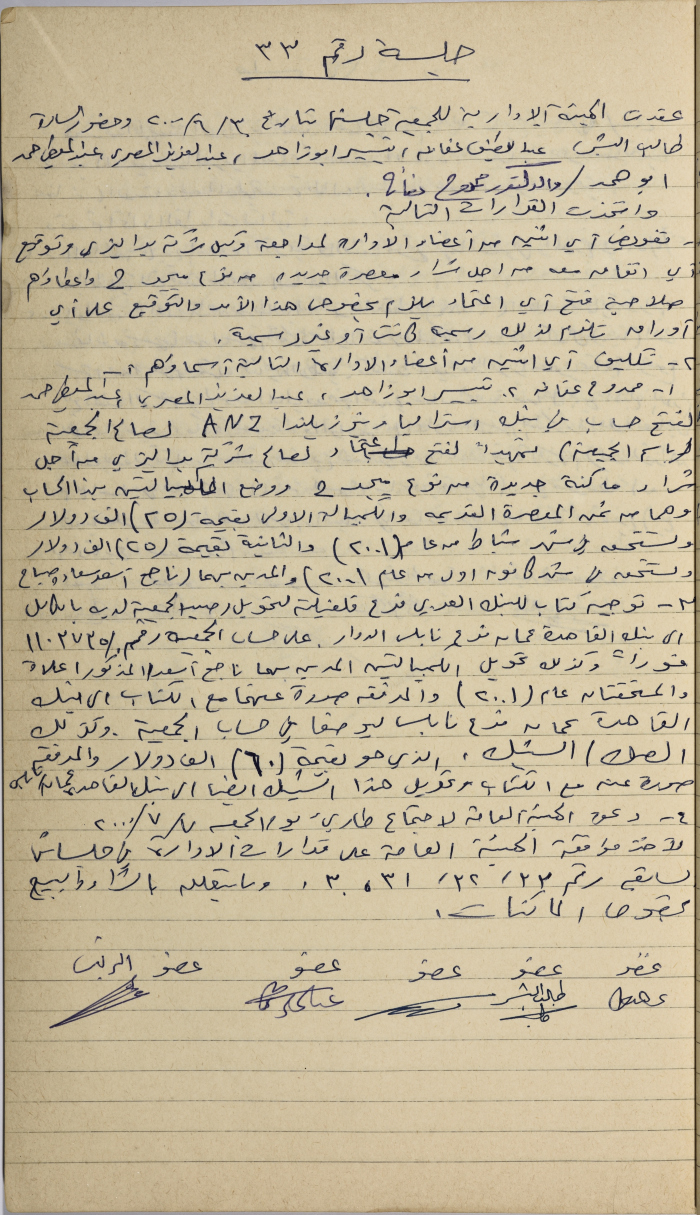 جلسة رقم ٣٣
عقدت الهيئة الادارية للجمعية جلستها بتاريخ ٢٠٠٠/٦/٣٠ وحضور السادة
طالب البشر، عبد اللطيف عنايه، تيسير ابو زاهد، عبد العزيز المصري، عبد المعطي حمد
ابو حمد / والدكتور ممدوح عنايه.
واتخذت القرارات التالية
- تفويض أي اثنين من أعضاء الادارة لمراجعة وكيل شركة بيراليزي وتوقيع
أي اتفاق معه من اجل شراء معصرة جديدة من نوع 2 واعطاؤهم
صلاحية فتح أي اعتماد يلزم بخصوص هذا الأمر والتوقيع على أي
أوراق تلزم لذلك رسمية كانت أو غير رسمية.
٢- تكليف أي اثنين من أعضاء الادارة التالية أسماؤهم :-
١- ممدوح عنايه ٢. تيسير ابو زاهد، عبد العزيز المصري، عبد المعطي حمد
لفتح حساب في بنك استراليا ونيوزيلندا ANZ لصالح الجمعية
(باسم الجمعية) تمهيداً لفتح اعتماد لصالح شركة بيراليزي من أجل
شراء ماكنة جديدة من نوع 2 ووضع الكمبيالتين بهذا الحساب
وهما من ثمن المعصرة القديمه والكمبيالة الاولى بقيمة (٢٥) الف دولار
وتستحق في شهر شباط من عام (٢٠٠١) والثانية بقيمة (٢٥) الف دولار
وتستحق في شهر كانون اول من عام ٢٠٠١) والمدين بهما (ناجح أسعد سعاده صباح
٣- توجيه كتاب للبنك العربي فرع قلقيلية لتحويل رصيد الجمعية لديه بالكامل
الى بنك القاهرة عمان فرع نابلس الدوار. على حساب الجمعية رقم ١١٠٢٧٣٥/
فوراً وكذلك تحويل الكمبيالتين المدين بهما ناجح أسعد المذكور اعلاه
والمستحقتان عام (٢٠٠١) والمرفقه صورة عنهما مع الكتاب الى بنك
القاهرة عمان فرع نابلس ليوضعا في حساب الجمعية. وكذلك
الصك / الشيك، الذي هو بقيمة (٦٠) الف دولار والمرفقه
صورة عنه مع الكتاب وتحويل هذا الشيك ايضا الى بنك القاهره عمان/نابلس
٤- دعوة الهيئة العامة لاجتماع طارئ يوم الجمعه ٢٠٠٠/٧/٧
لأخذ موافقة الهيئة العامة على قرارات الادارة في جلسات
سابقه رقم ٢٣/ ٢٢/ ٣١، ٣٠، وما يتعلق بالشراء والبيع
بخصوص الماكنات.
عضو عضو عضو عضو عضو الرئيس
طالب البشر